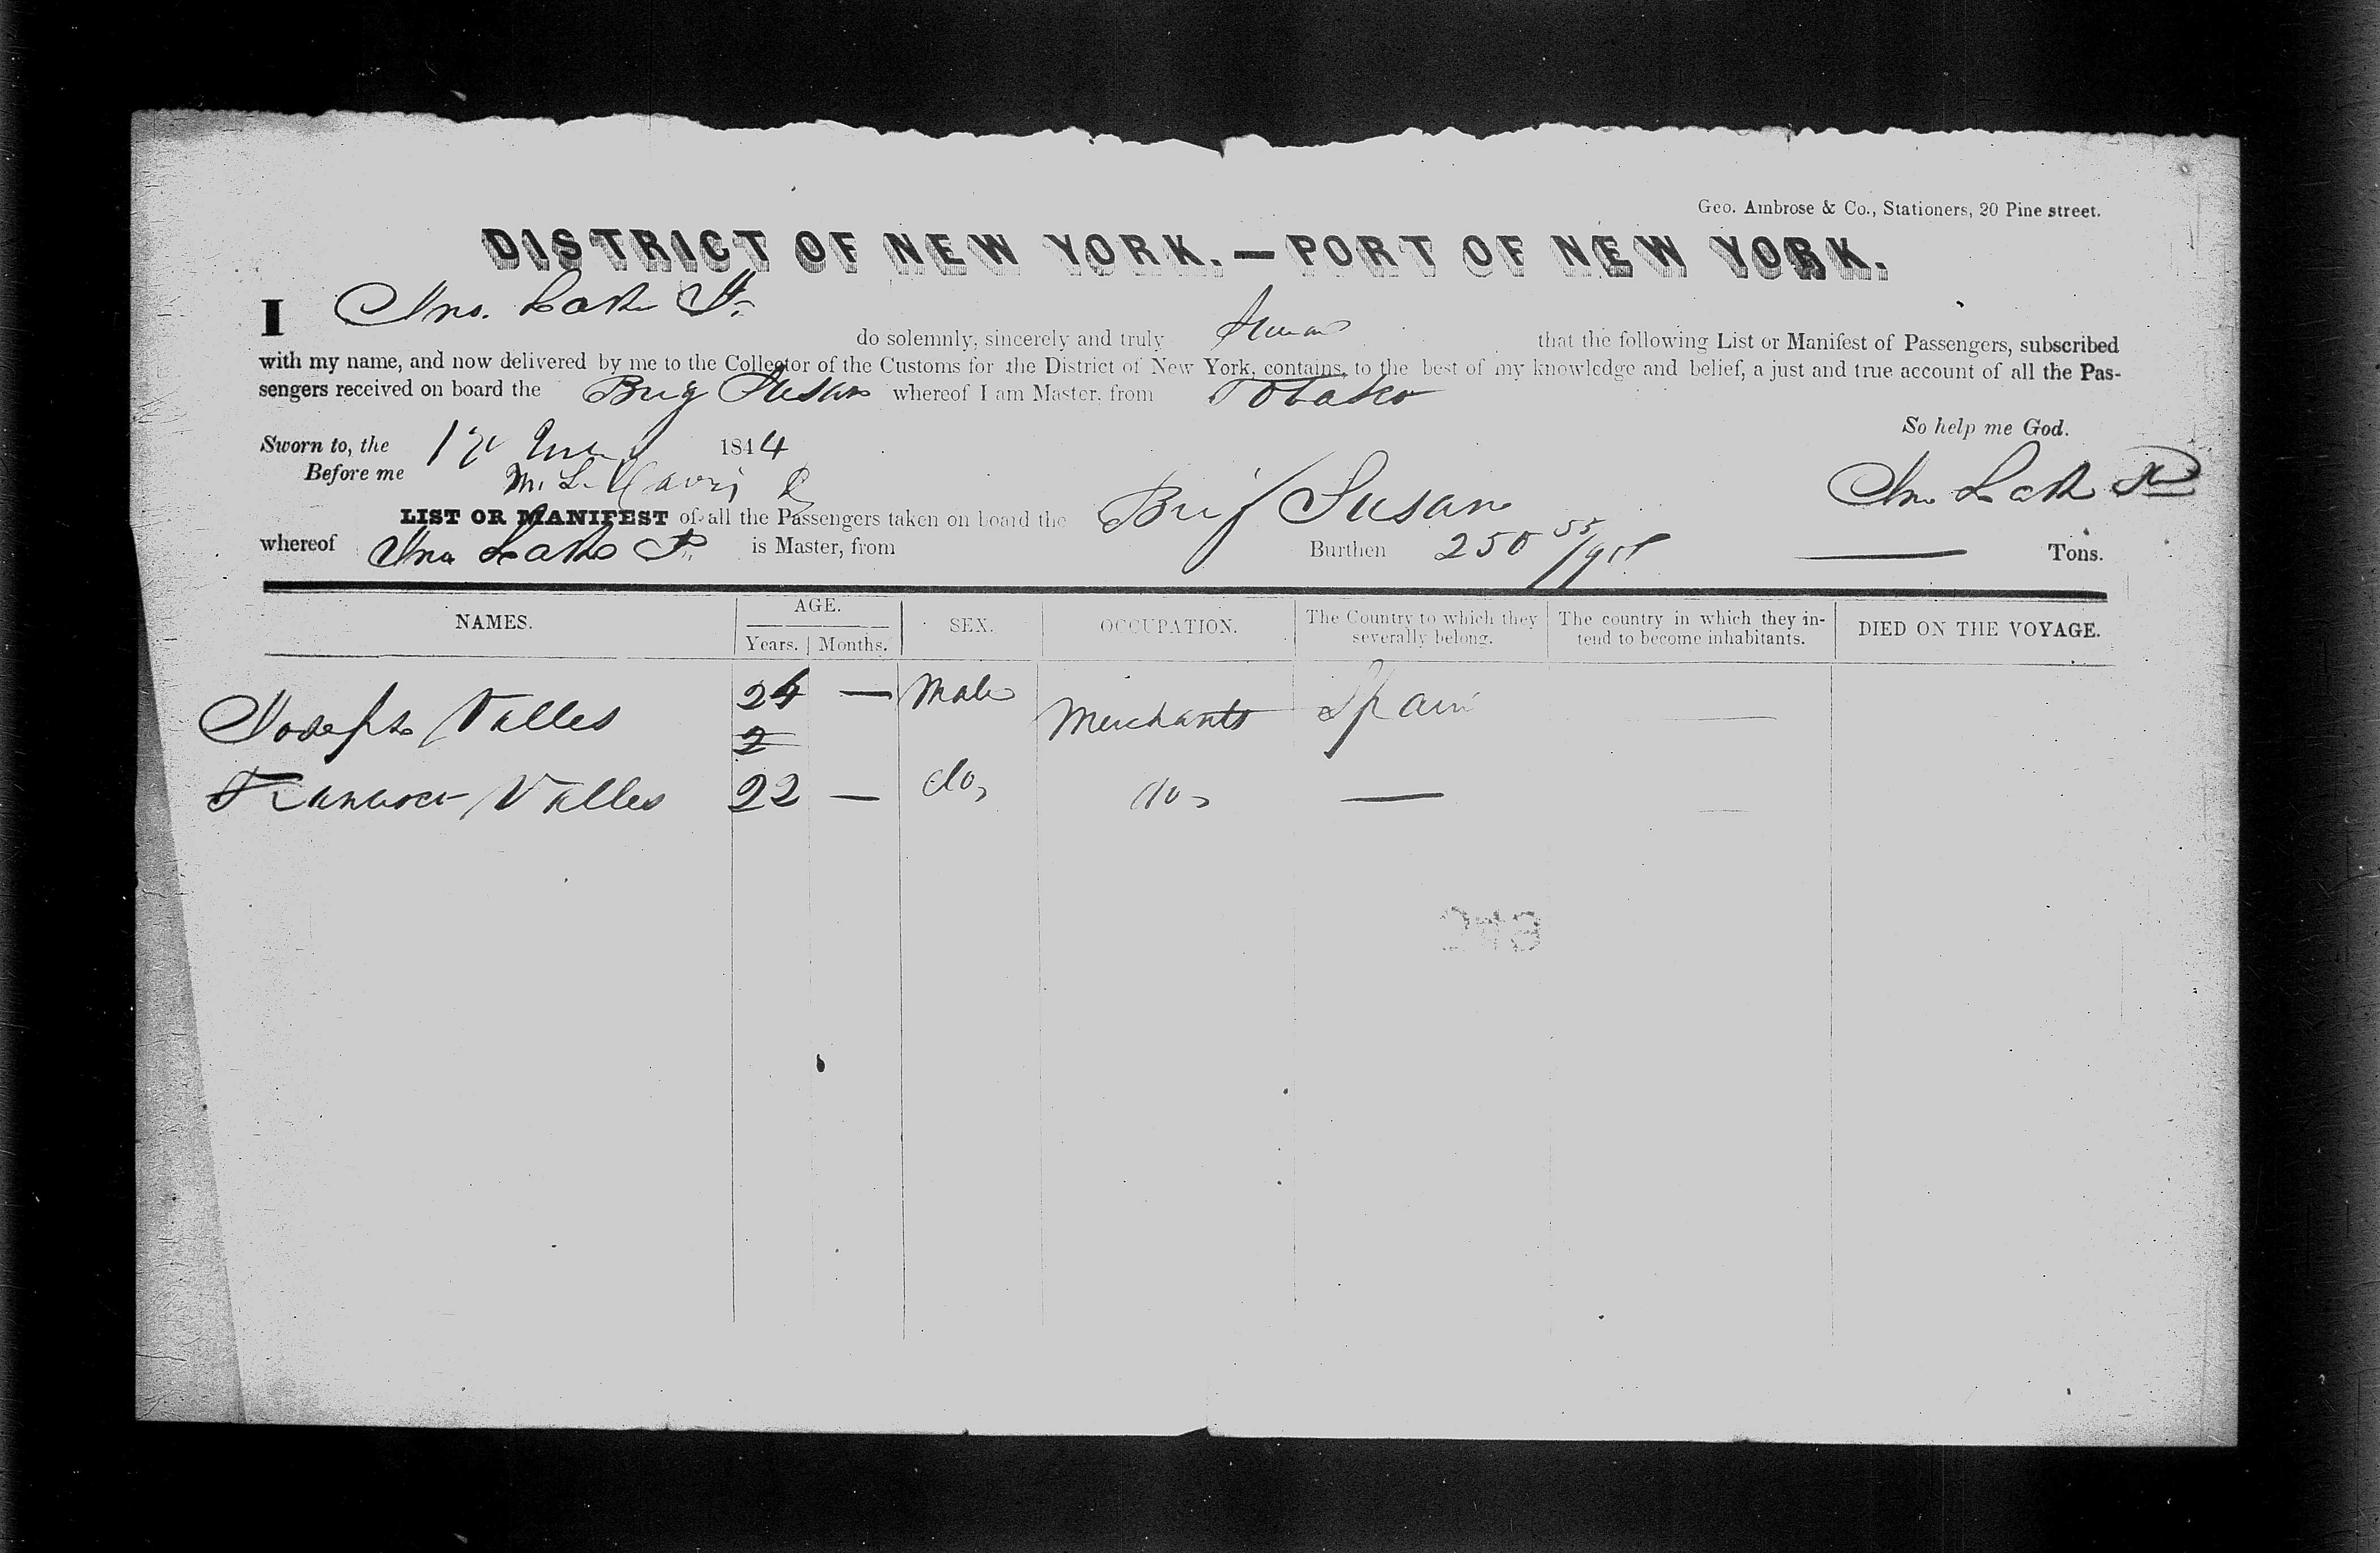 Geo. Ambrose & Co., Stationers, 20 Pine street.
DISTRICT OF NEW YORK.—PORT OF NEW YORK.
I Jno. Jr. do solemnly, sincerely and truly that the following List or Manifest of Passengers, subscribed
with my name, and now delivered by me to the Collector of the Customs for the District of New York, contains, to the best of my knowledge and belief, a just and true account of all the Pas-
sengers received on board the Brig Susan whereof I am Master, from
So help me God.
Sworn to, the 1844
Before me M. L. Davis
Jno
LIST OR MANIFEST of all the Passengers taken on board the Brig Susan
whereof Jno is Master, from Burthen 250 55/95 Tons.
NAMES. AGE. SEX. OCCUPATION. The Country to which they severally belong. The country in which they in- tend to become inhabitants. DIED ON THE VOYAGE.
Years. Months.
Joseph Valles 24 — Male Merchants Spain —
2
Francisco Valles 22 — do, do, — —